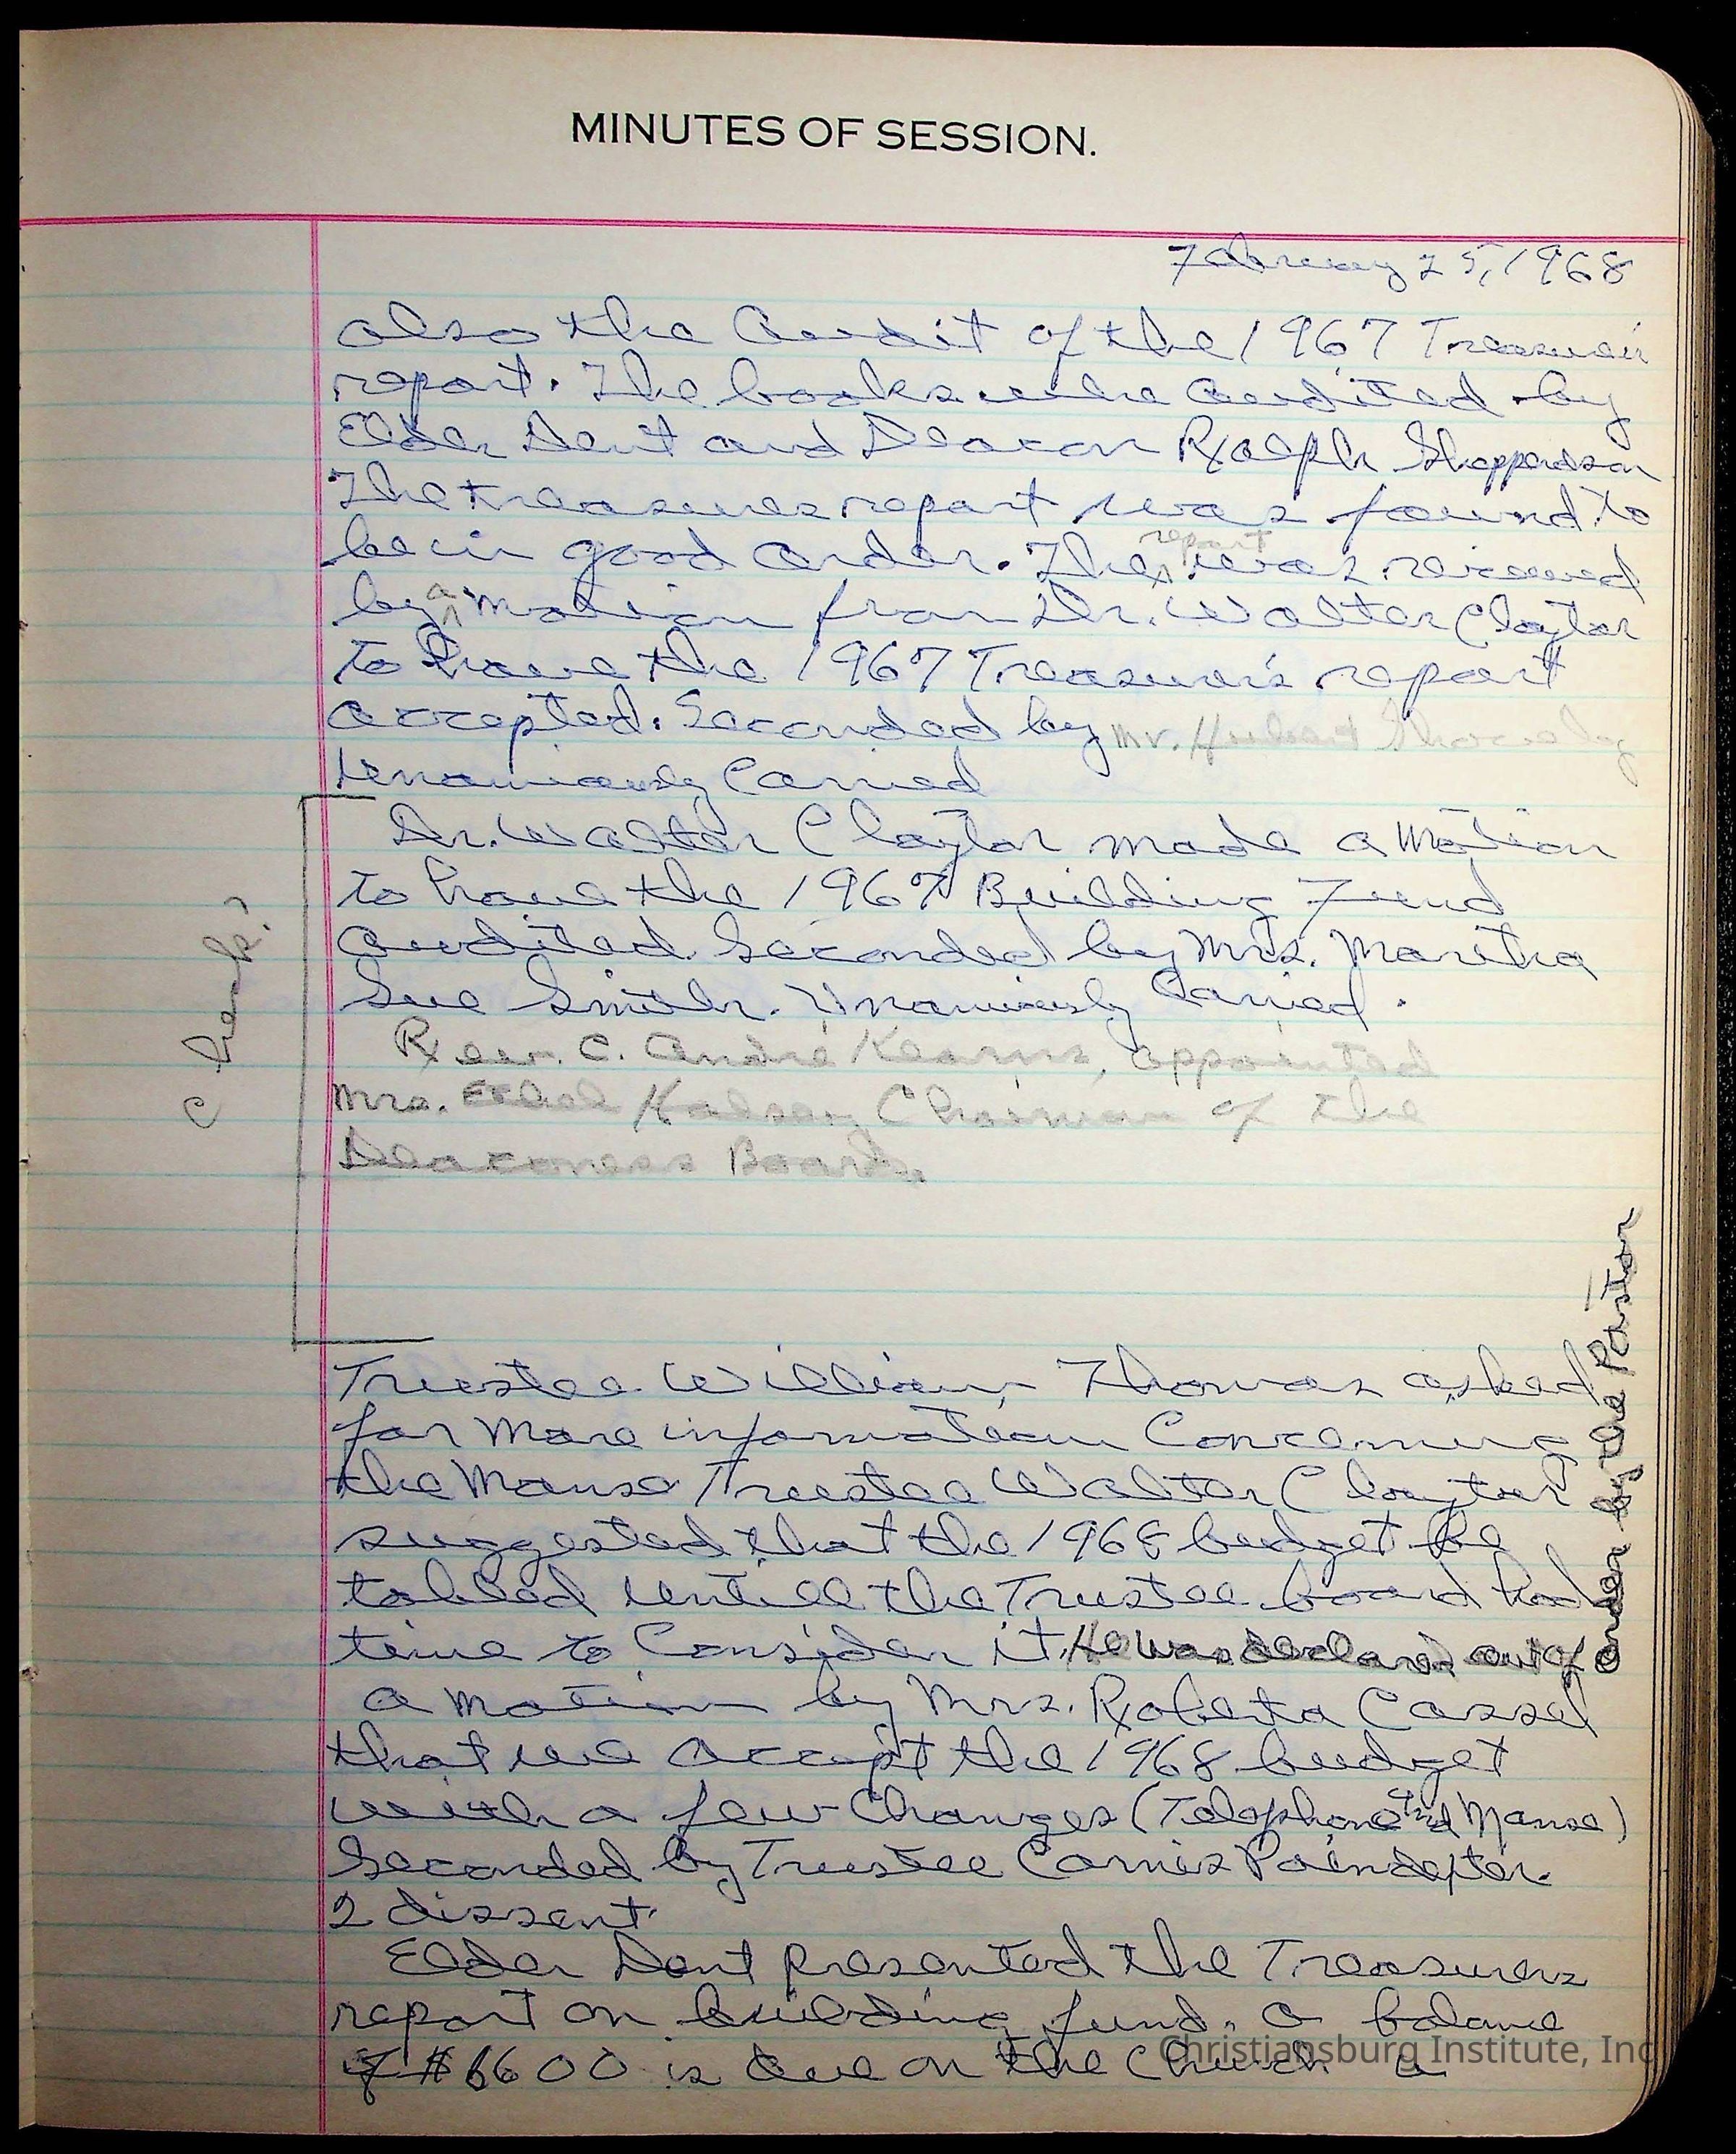 MINUTES OF SESSION.
February 25, 1968
also the Audit of the 1967 Treasurer's
report. The books were audited by
Elder Dent and Deacon Ralph Sheppardson
The treasures report was found to
be in good order. The report was received
by a motion from Dr. Walter Claytor
to have the 1967 Treasurer's report
accepted. Seconded by Mr. Hubert
Unanimously Carried
Dr. Walter Claytor made a Motion
to have the 1967 Building Fund
audited. Seconded by Mrs. Martha
Sue Smith. Unanimously Carried.
Rev. C. André Kearns, appointed
Mrs. Ethel Chairman of the
Deaconess Board.
Check?
Trustee William Thomas asked
for more information Concerning
the Manse Trustee Walter Claytor
suggested that the 1968 budget be
tabled untill the Trustee board had
time to Consider it. He was declared out of
order by the Pastor
a motion by Mrs. Roberta Cassel
that we accept the 1968 budget
with a few Changes (Telephone and Manse)
Seconded by Trustee Poindexter.
2 dissent.
Elder Dent presented the Treasurers
report on building fund. a balance
of $6600 is due on the Church a
Christiansburg Institute, Inc